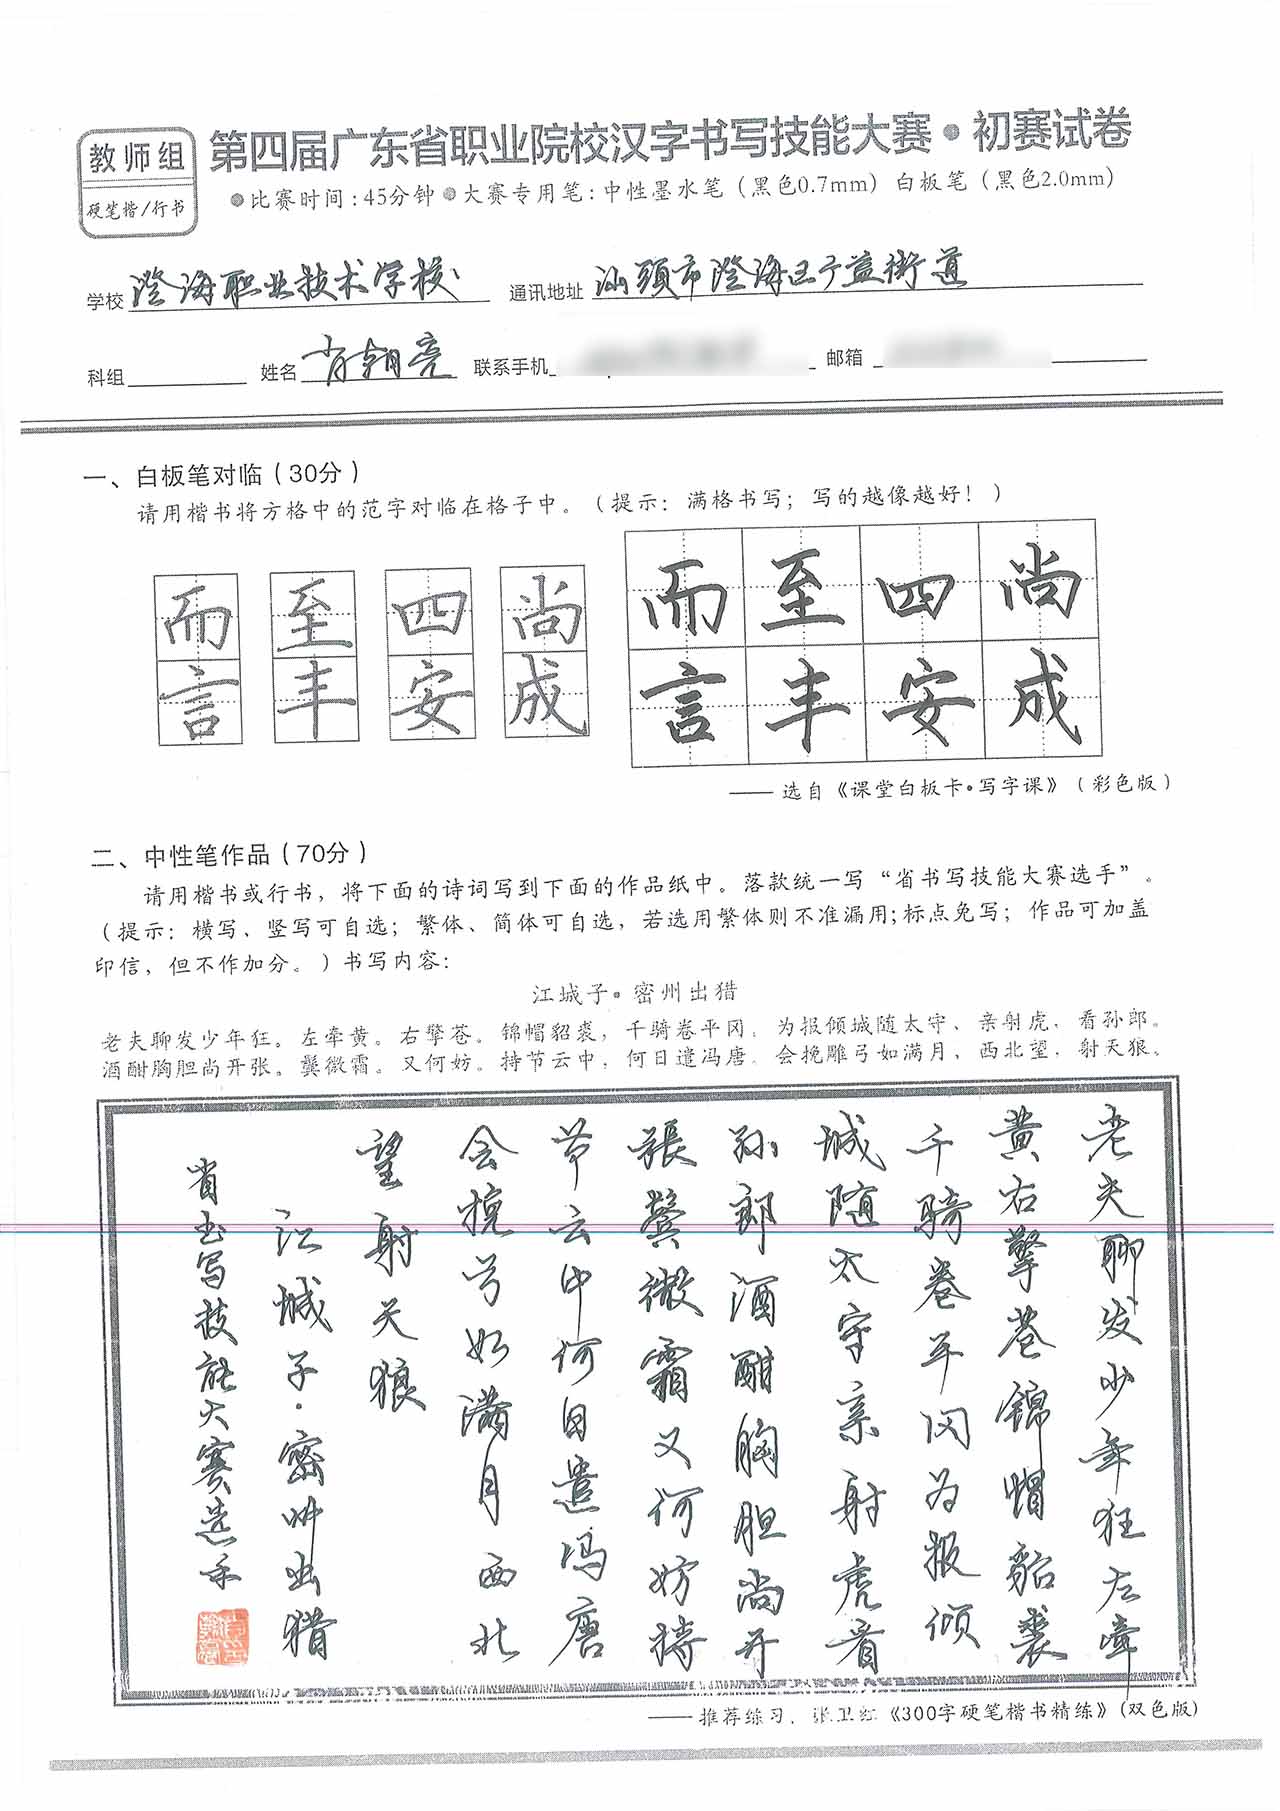 教师组
硬笔楷/行书
第四届广东省职业院校汉字书写技能大赛•初赛试卷
●比赛时间:45分钟●大赛专用笔:中性墨水笔(黑色0.7mm)白板笔(黑色2.0mm)
学校 澄海职业技术学校 通讯地址 汕頭市澄海区广益街道
科组 姓名 肖朝亮 联系手机 邮箱
一、白板笔对临(30分)
请用楷书将方格中的范字对临在格子中。(提示:满格书写;写的越像越好!)
而至四尚 而至四尚
言丰安成 言丰安成
——选自《课堂白板卡•写字课》(彩色版)
二、中性笔作品(70分)
请用楷书或行书,将下面的诗词写到下面的作品纸中。落款统一写“省书写技能大赛选手”。
(提示:横写、竖写可自选;繁体、简体可自选,若选用繁体则不准漏用;标点免写;作品可加盖
印信,但不作加分。)书写内容:
江城子•密州出猎
老夫聊发少年狂。左牵黄。右擎苍。锦帽貂裘,千骑卷平冈。为报倾城随太守、亲射虎,看孙郎。
酒酣胸胆尚开张。鬓微霜。又何妨。持节云中,何日遣冯唐。会挽雕弓如满月,西北望,射天狼。
老夫聊发少年狂左牵
黄右擎苍锦帽貂裘
千骑卷平冈为报倾
城随太守亲射虎看
孙郎酒酣胸胆尚开
張鬓微霜又何妨持
节云中何日遣冯唐
会挽弓如满月西北
望射天狼
江城子·密州出猎
省书写技能大赛选手
——推荐练习,张卫红《300字硬笔楷书精练》(双色版)